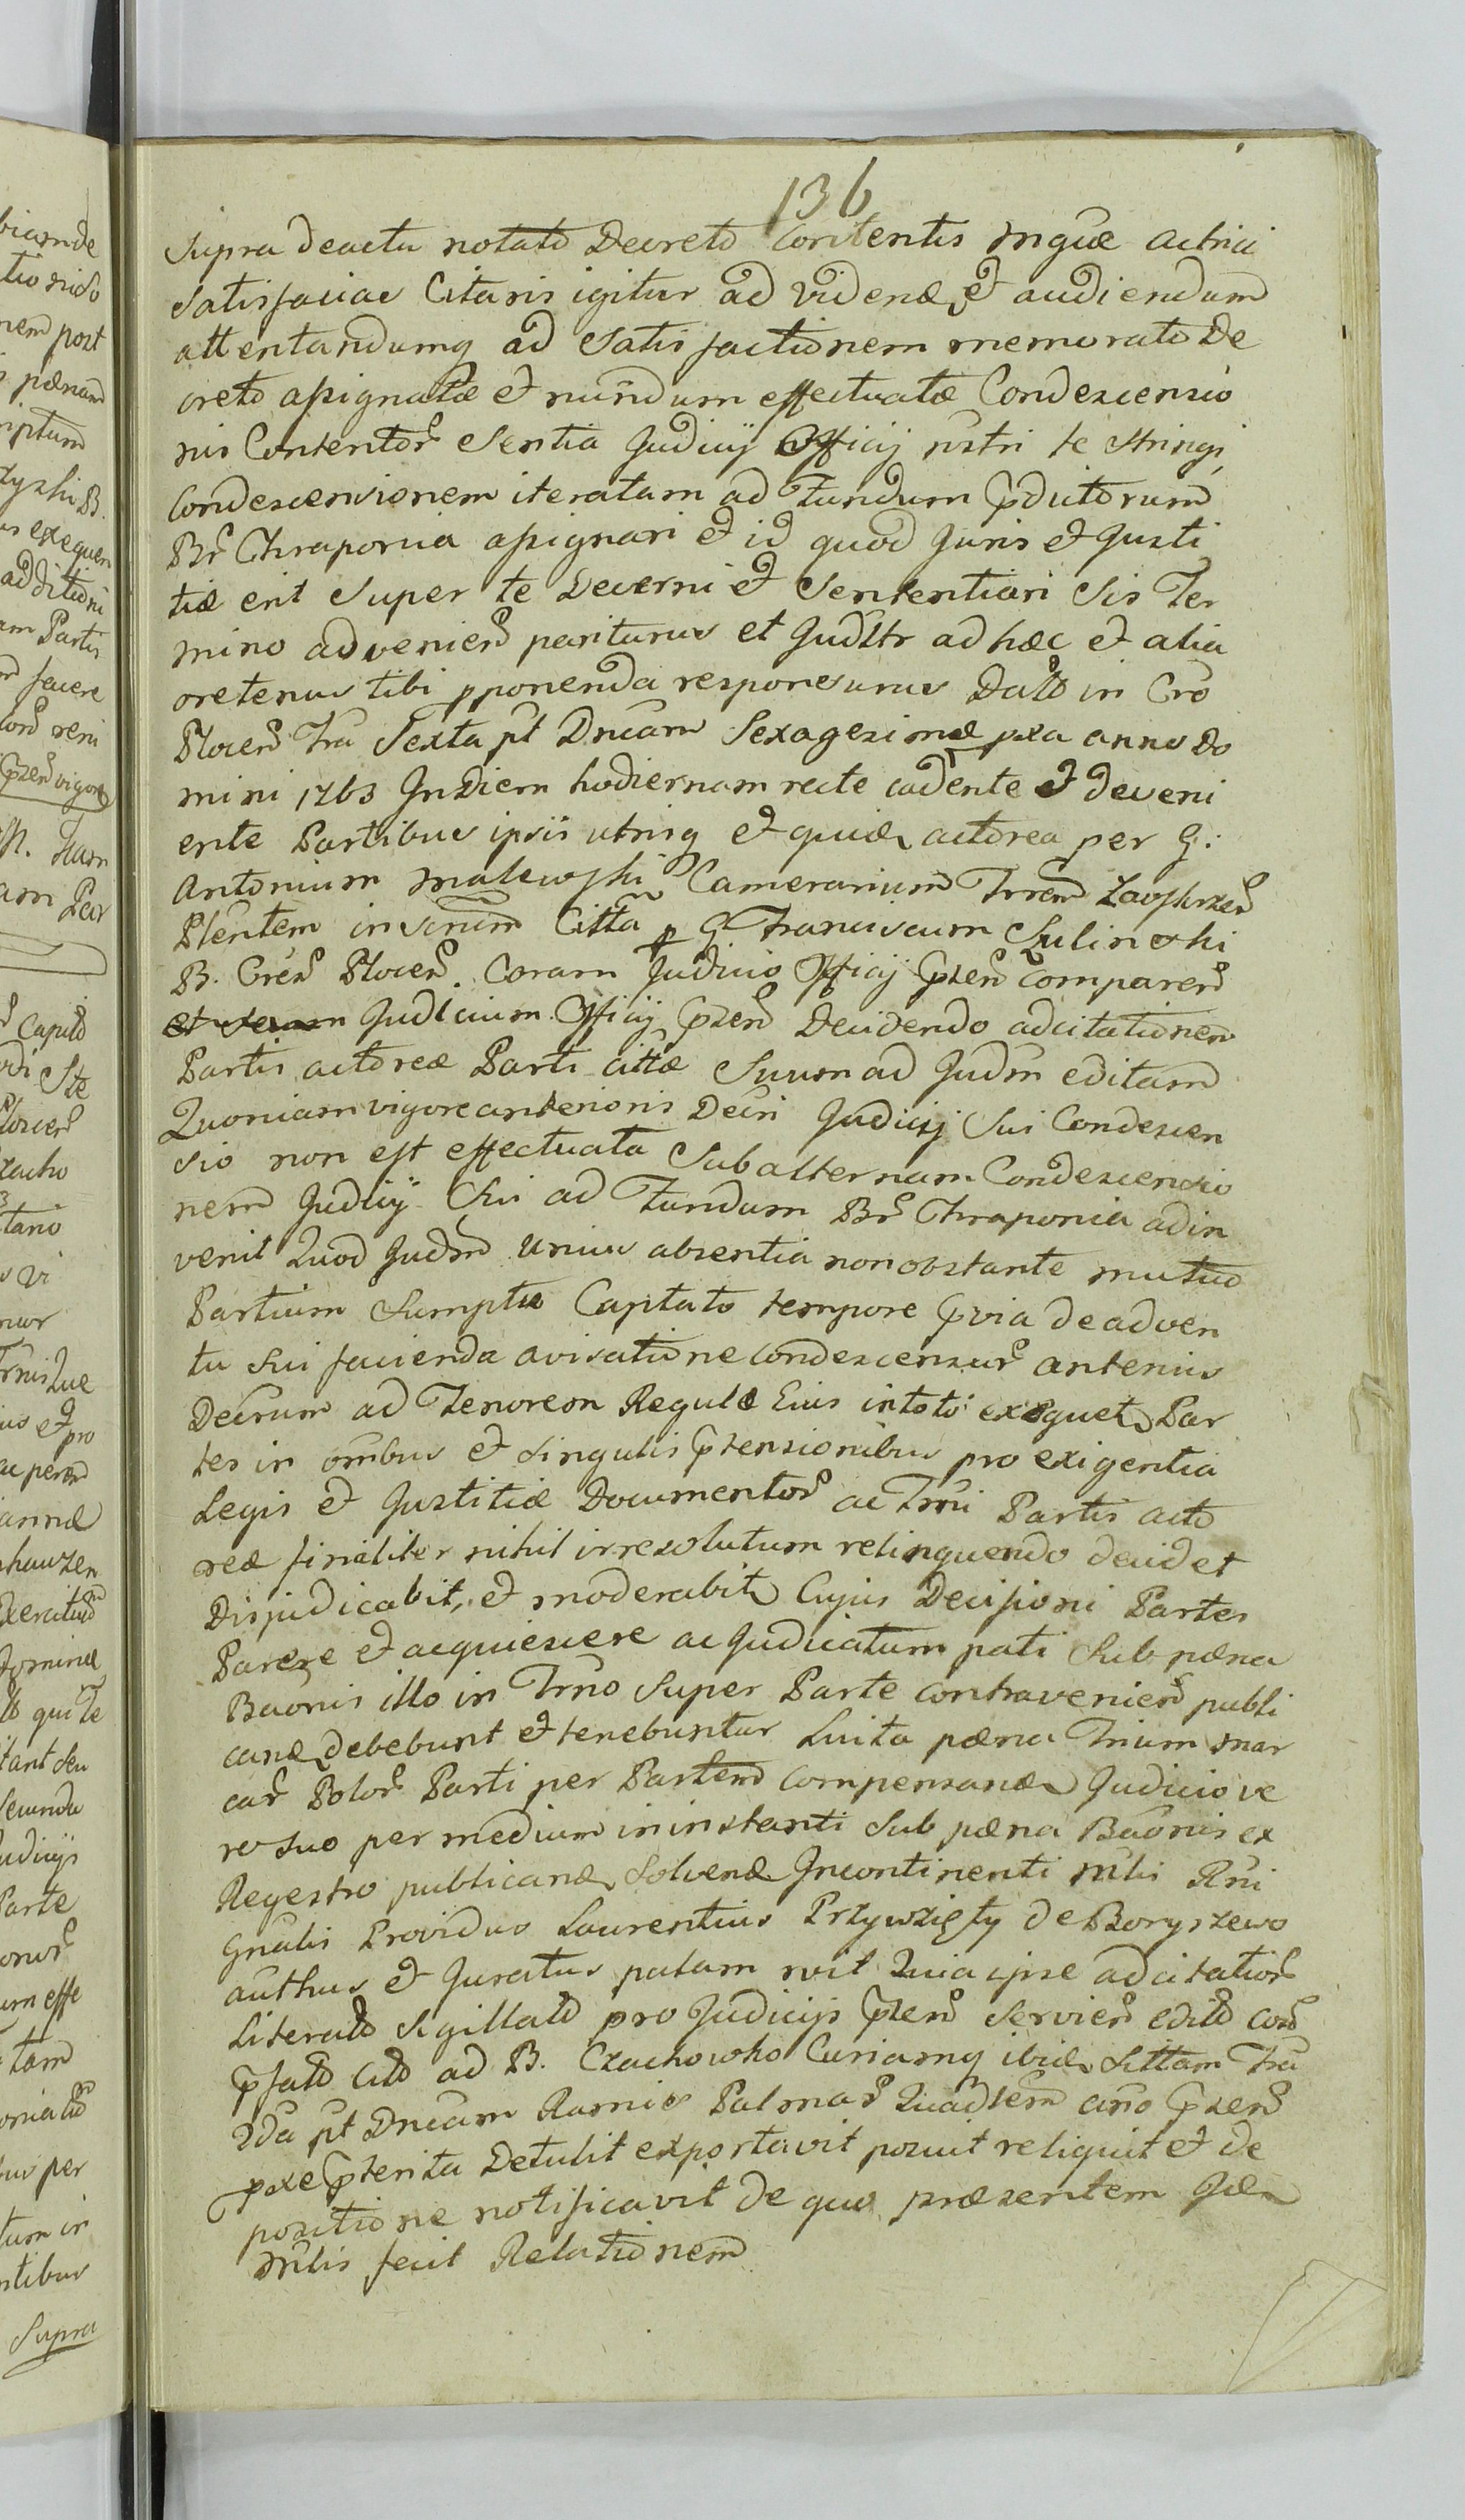 136
Supra deactu notato Decreto Contentis ingue actrici
Satisfacias Citaris igitur ad Videnđ et audiendum
attentandumq ad Satisfactionem memorato De
creto assignatæ et nundum effectuatæ Condescensio
nis Contentor Sentia Judicij Officij nstri te stringi
Condescensionem iteratam ad Fundum Pdictorum
Br Chraponia assignari et id quod Juris et Justi
tiæ erit Super te Decerni et Sententiari Sis Ter
mino advenien pariturus et Judltr ad hæc et alia
oretenus tibi pponenda responsurus Datt in Cro
Plocen Fra Sexta pt Dncam Sexagesimæ pxa anno Do
mini 1763 In Diem hodiernam recte cadente et deveni
ente Partibus ipsis utrisq et quid actorea per G:
Antonium Malewski Camerarium Trrem Zawskrzen
Plentem in Scrum Citta p G Franciscum Sulinski
B. Cren Plocen. Coram Judicio Officij Psen Comparen
Judicium Officij Psen Decidendo ad citationem
Partis actoreæ Parti cittæ Suum ad Judm editam
Quoniam vigore anterioris Decri Judicij Sui Condescen
sio non est effectuata Sub alternam Condescensio
nem Judicij Sui ad Fundum Br Chraponia adin
venit Quod Judm Unius absentia non obstante mutuo
Partium Sumptu Captato tempore Pvia de adven
tu Sui facienda avisatione condescensur anterius
Decrum ad Tenorem Regulæ Eius in toto exequet Par
tes in omibus et Singulis Ptensionibus pro exigentia
Legis et Justitiæ Documentor ac Trmi Partis acto
reæ finaliter nihil irresolutum relinquendo decidet
Disjudicabit, et moderabit Cujus Decisioni Partes
Parere et acquiescere ac Judicatum pati Sub pæna
Baonis illo in Trno Super Parte contravenien publi
canđ debebunt et tenebuntur Luita pæna Trium mar
car Polor Parti per Partem compensanđ Judicio ve
ro Suo per medium in instanti Sub pæna Baonis ex
Regestro publicanđ Solvenđ Incontinenti Mlis Rni
Gnalis Providus Laurentius Przywzięty de Boryszewo
authus et Juratus palam rvit Quia ipse ad citation
Literato Sigillato pro Judicijs Psen Servien edito
Pfato Citto ad B. Czachowsko Curiamq ibid Sittam Fra
2da pt Dncam Ramis Palmar Quadlem ano Psen
pxe Pterita Detulit exportavit posuit reliquit et de
positione notificavit de quo præsentem Idem
Mlis fecit Relationem
Supra